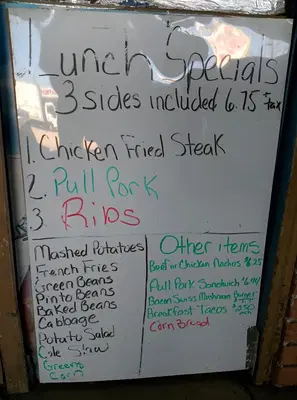 Lunch Specials
3 sides included 6.75 + tax
1. Chicken Fried Steak
2. Pull Pork
3 Ribs
Mashed Potatoes
French Fries
Green Beans
Pinto Beans
Baked Beans
Cabbage
Potato Salad
Cole Slaw
Greens
Corn
Other items
Beef or Chicken Nachos
Pull Pork Sandwich
Bacon Swiss Mushroom Burger
Breakfast Tacos
Corn Bread